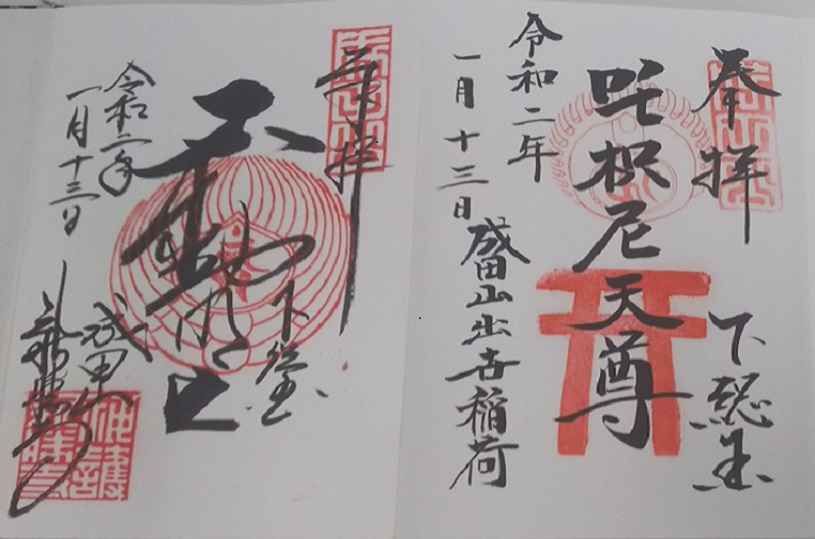 奉拝 下総国
吒枳尼天尊
令和二年
一月十三日
成田山出世稲荷
奉拝
下総国
不動明王
令和二年
一月十三日
成田山
新勝寺